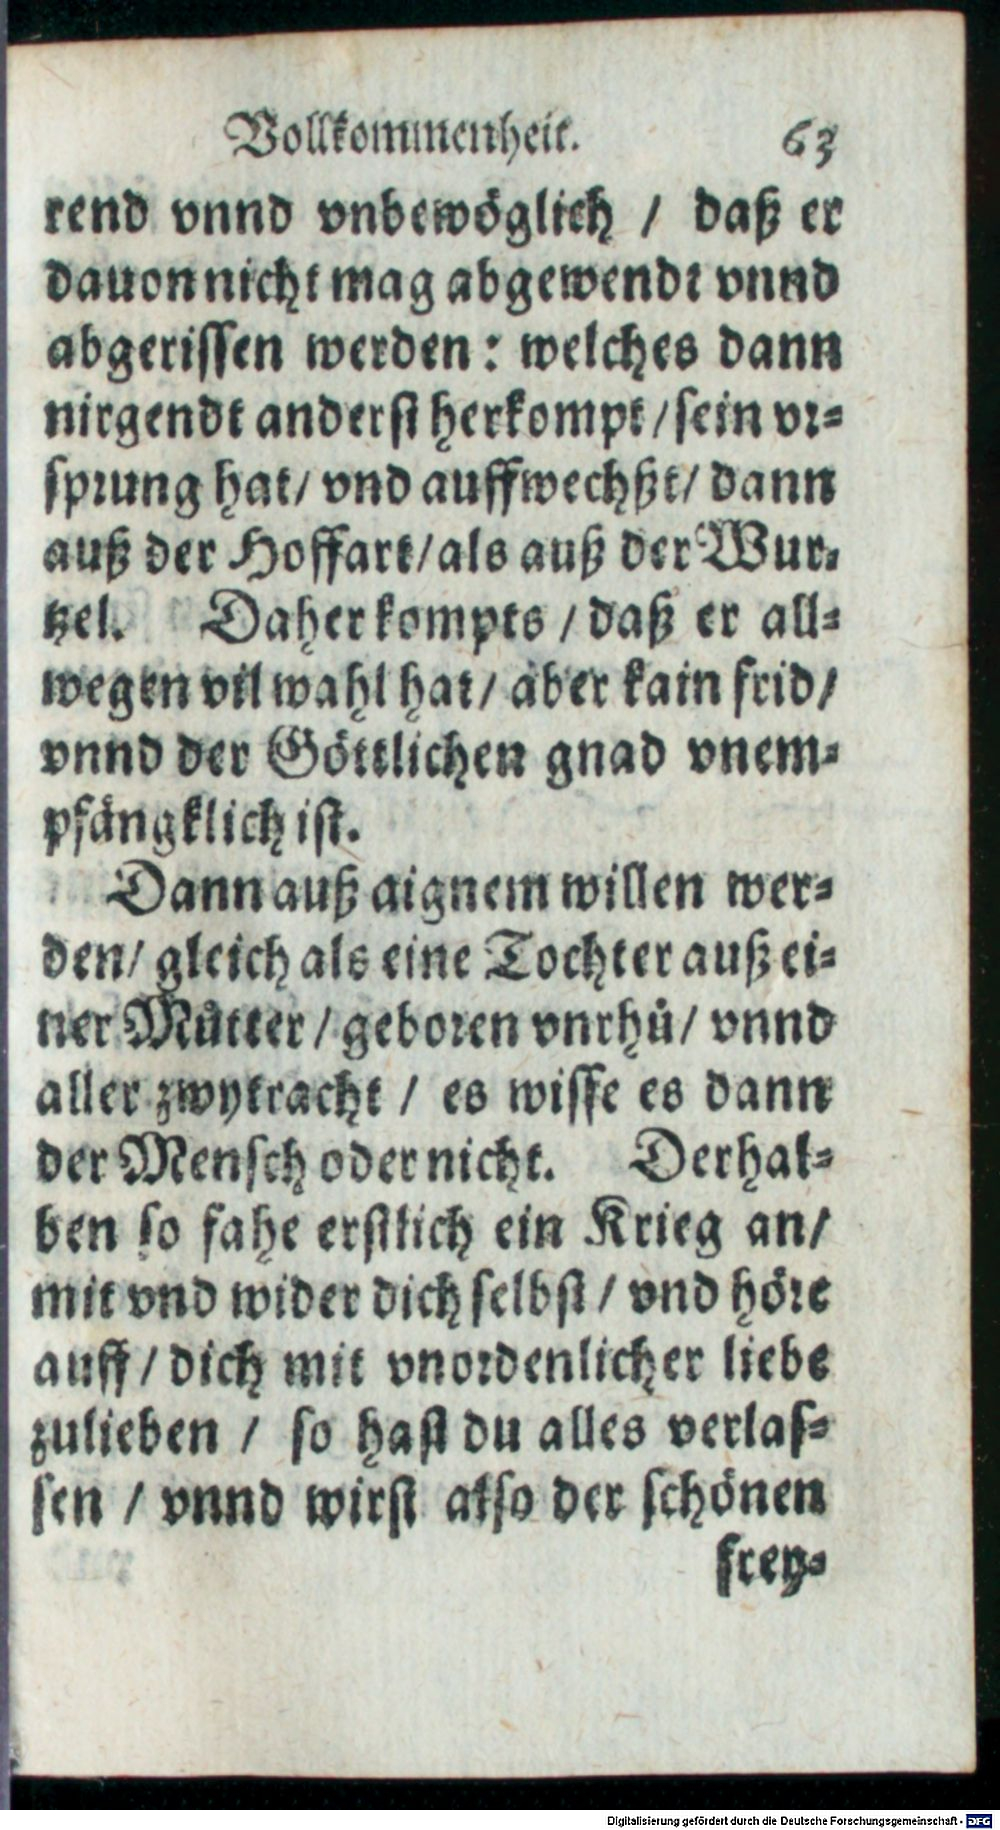 Vollkommenheit. 63
rend vnnd vnbewöglich / daß er
dauon nicht mag abgewendt vnnd
abgerissen werden: welches dann
nirgendt anderst herkompt / sein vr-
sprung hat / vnd auffwechßt / dann
auß der Hoffart / als auß der Wur-
tzel. Daher kompts / daß er all-
wegen vil wahl hat / aber kain frid /
vnnd der Göttlichen gnad vnem-
pfängklich ist.
Dann auß aignem willen wer-
den / gleich als eine Tochter auß ei-
ner Můtter / geboren vnrhů / vnnd
aller zwytracht / es wisse es dann
der Mensch oder nicht. Derhal-
ben so fahe erstlich ein Krieg an /
mit vnd wider dich selbst / vnd höre
auff / dich mit vnordenlicher liebe
zulieben / so hast du alles verlas-
sen / vnnd wirst also der schönen
frey-
Digitalisierung gefördert durch die Deutsche Forschungsgemeinschaft - DFG